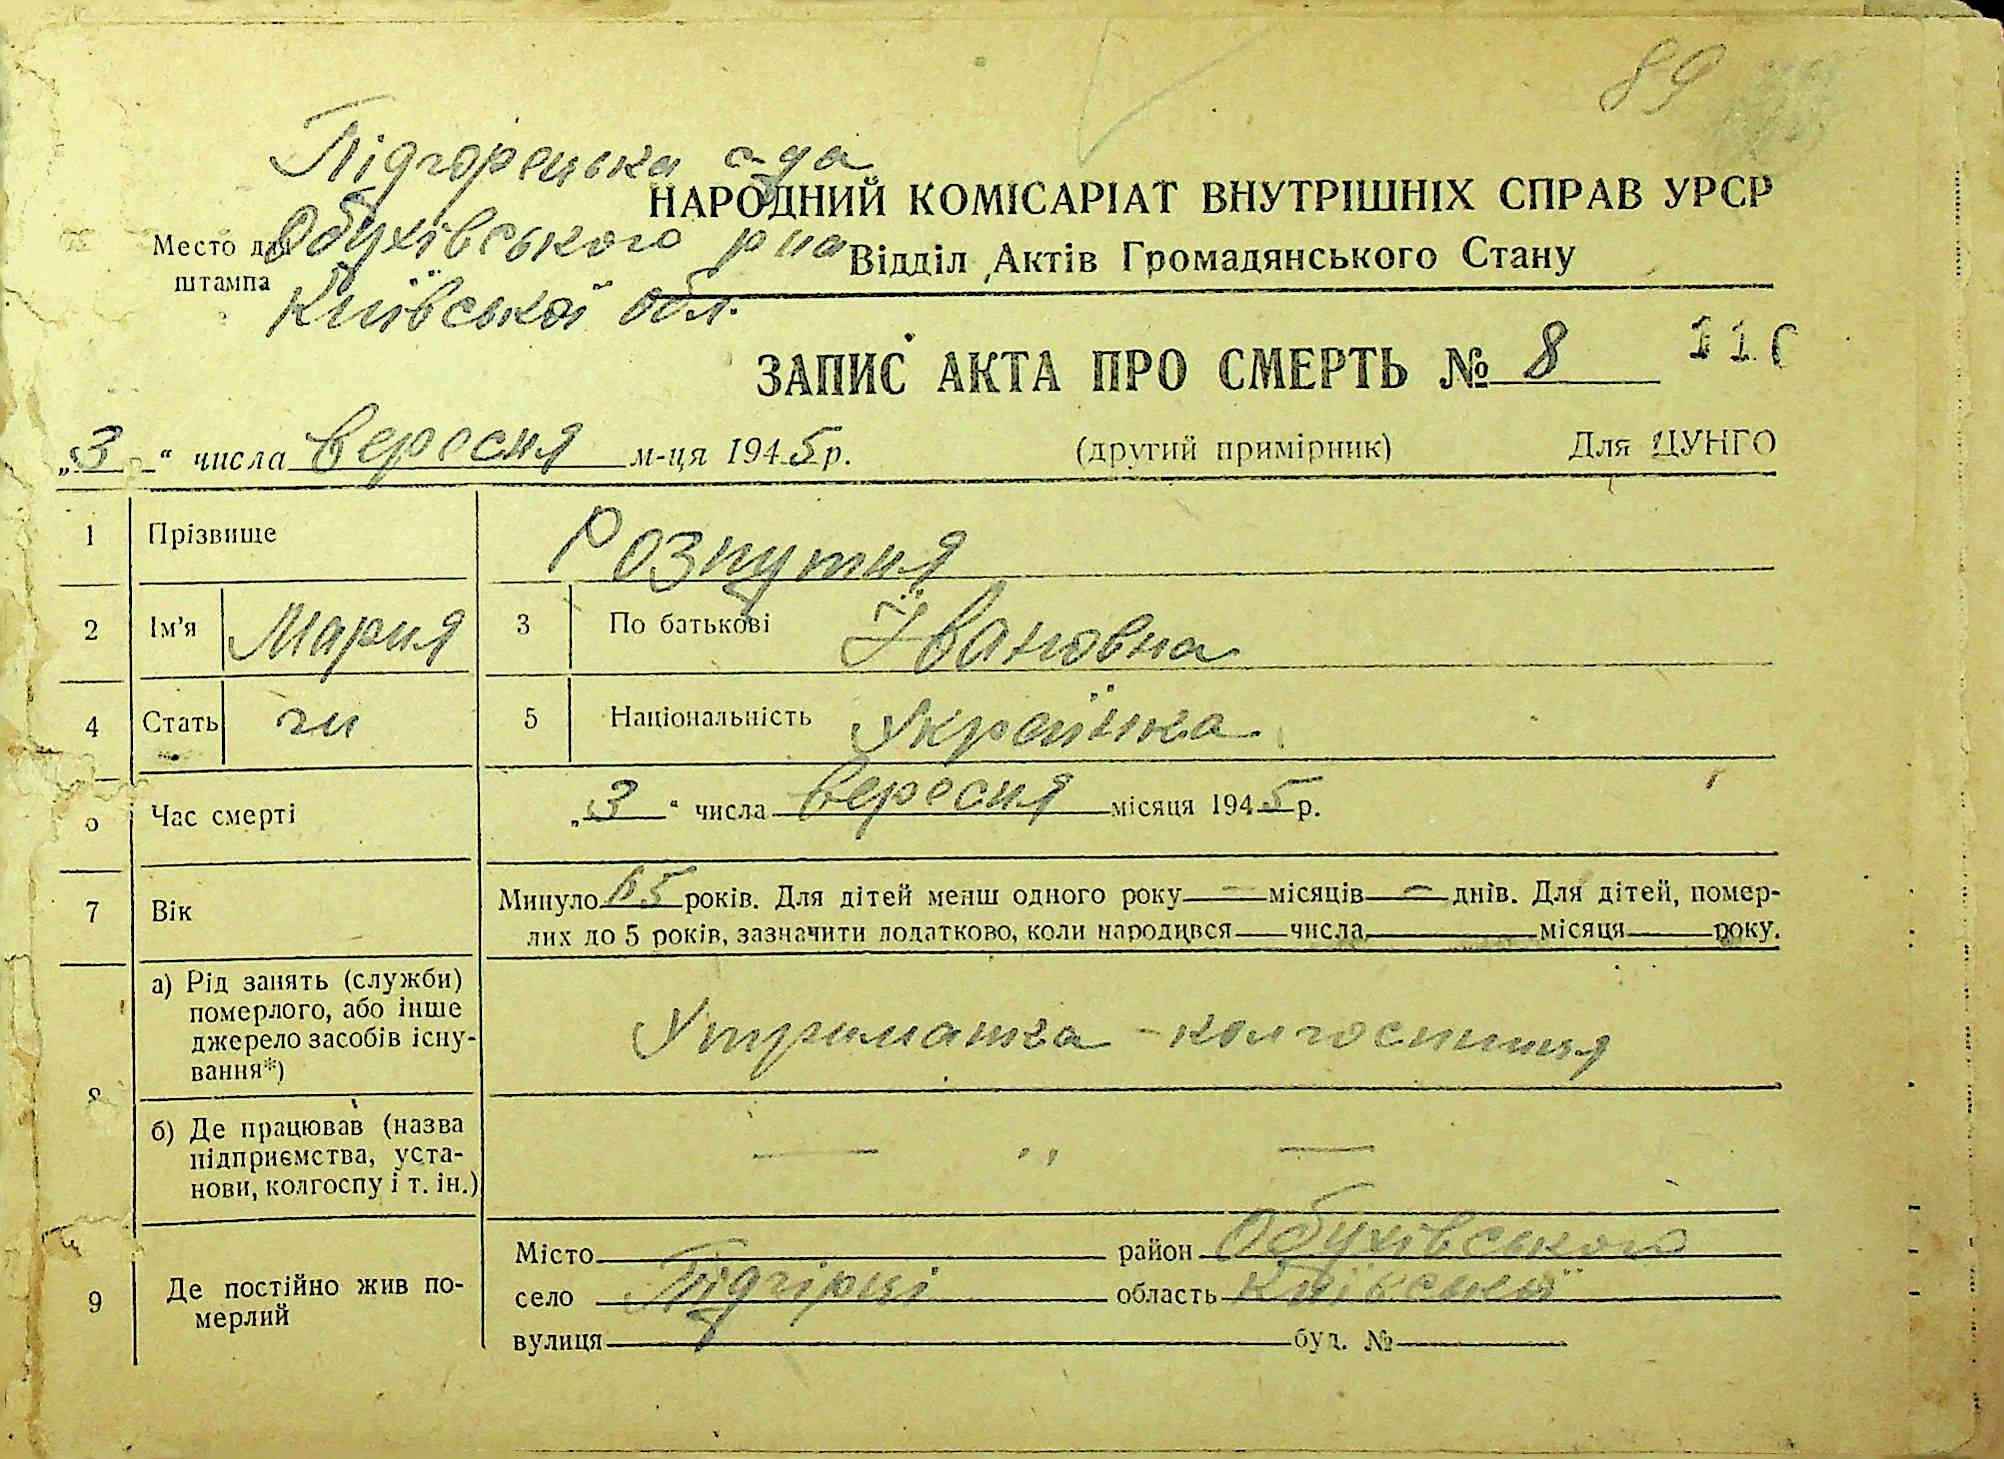 89
Підгорецька с-да
НАРОДНИЙ КОМІСАРІАТ ВНУТРІШНІХ СПРАВ УРСР
Место для штампа
Обухівського р-на
Відділ Актів Громадянського Стану
Київської обл.
ЗАПИС АКТА ПРО СМЕРТЬ № 8 110
„3“ числа вересня м-ця 1945 р. (другий примірник) Для ЦУНГО
1 Прізвище Розпутня
2 Ім'я Мария 3 По батькові Івановна
4 Стать 5 Національність Українка
6 Час смерті „3“ числа вересня місяця 1945 р.
7 Вік Минуло 65 років. Для дітей менш одного року — місяців — днів. Для дітей, помер-
лих до 5 років, зазначити додатково, коли народився числа місяця року.
8 а) Рід занять (служби)
померлого, або інше
джерело засобів існу-
вання*)
Утриматка - колгоспниця
б) Де працював (назва
підприємства, уста-
нови, колгоспу і т. ін.)
— ,, —
9 Де постійно жив по-
мерлий
Місто район Обухівського
село Підгірці область Київської
вулиця буд. №